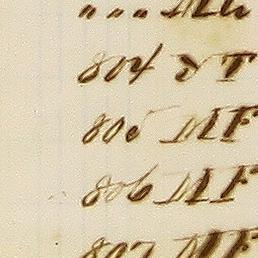 " " " M
804 & T
805 MF
806 MF
807 MF